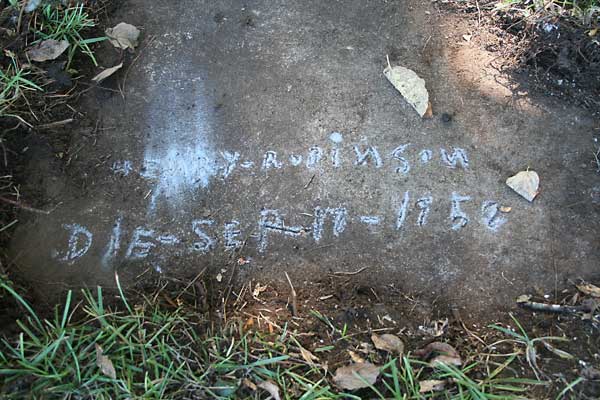 HENRY-ROBINSON
DIE-SEP-17-1952